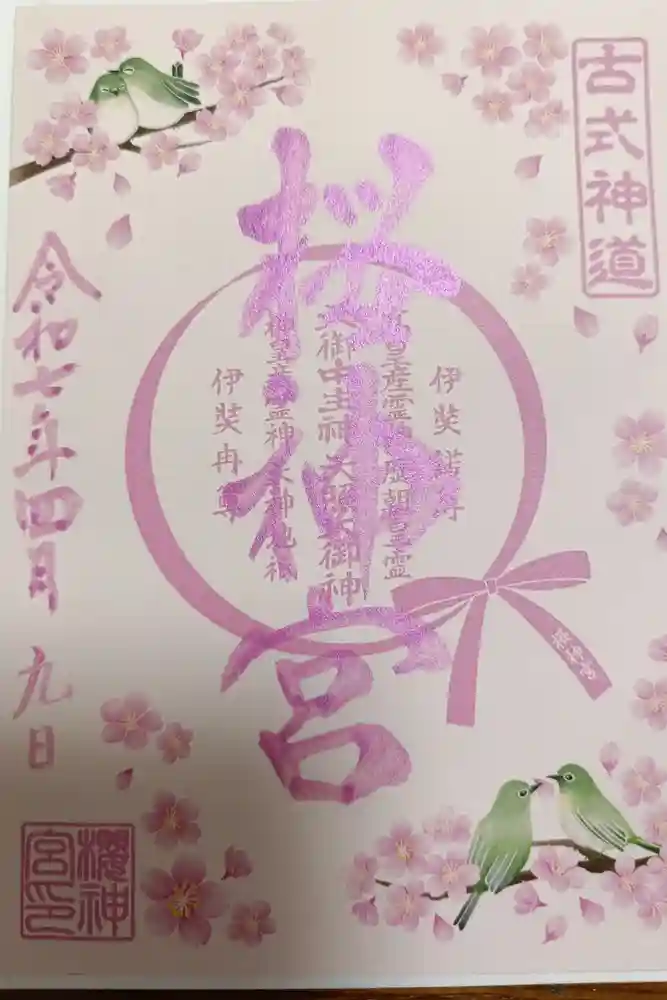 古式神道
桜神宮
伊奘諾尊
高皇産霊神 歴朝皇霊
天御中主神 天照大御神
神皇産霊神 天神地祇
伊奘冉尊
桜神宮
令和七年四月 九日
櫻神
宮印